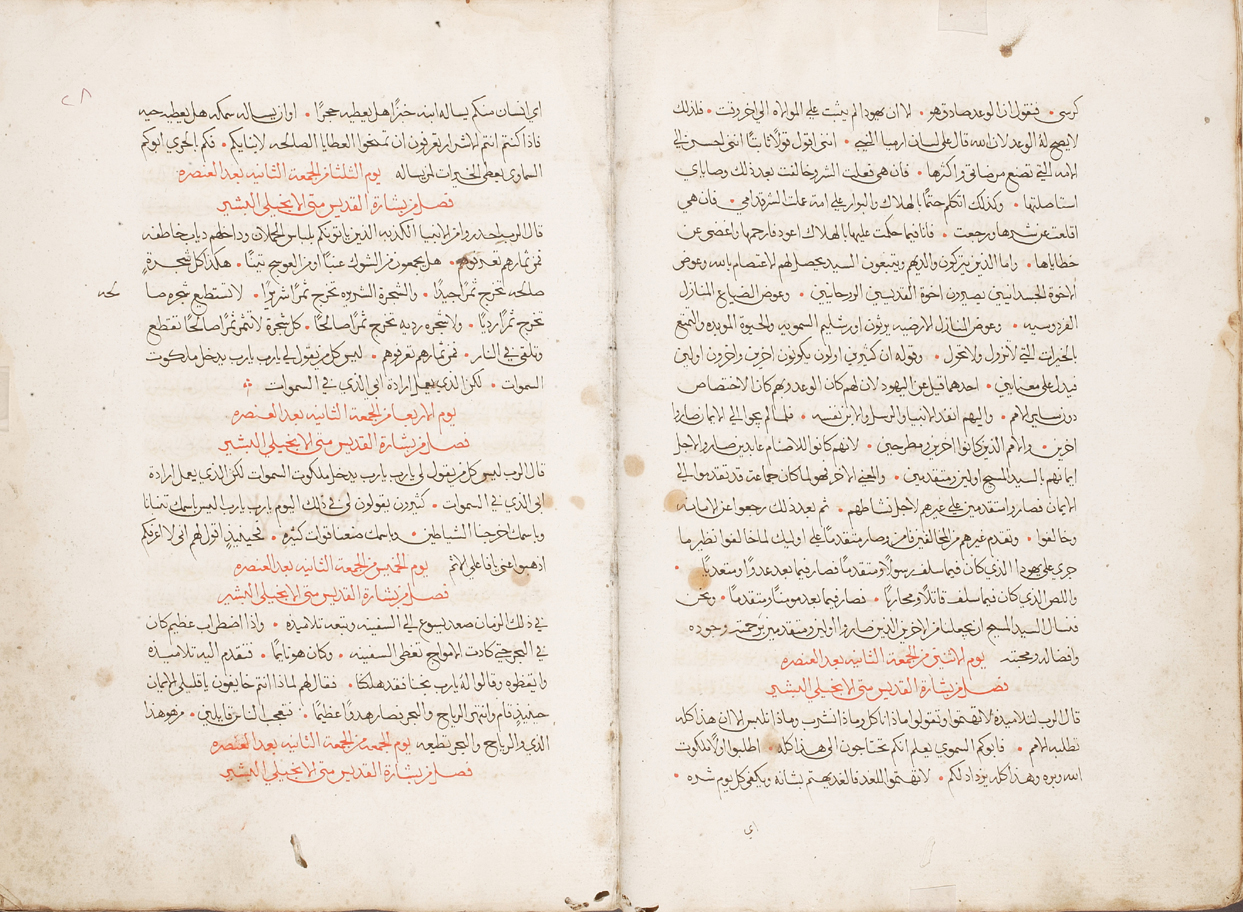 كرسي • فنقول ان الوعد صادق هو • الا ان يهودا لم يثبت على الموالاه الى اخر وقت • فلذلك
لا يصح له الوعد لان الله قال على لسان ارميا النبي • انني اقول قولًا ثابتًا انني احسن الى
الامه التي تصنع مرضاتي واكثرها • فان هي فعلت الشر وخالفت بعد ذلك وصاياي
استاصلتها • وكذلك اتكلم حتمًا بالهلاك والبوار على امة عملت الشر قدامي • فان هي
اقلعت عن شرها ورجعت • فانا فيما حكمت عليها بالهلاك اعود فارحمها واغضي عن
خطاياها • واما الذين يتركون والديهم ويتبعون السيد يحصل لهم الاعتصام بالله وعوض
الاخوة الجسدانيين يصيرون اخوة القديسين الروحانيين • وعوض الضياع المنازل
الفردوسيه • وعوض المنازل الارضيه يرثون اورشليم السمويه والحيوة الموبده والتمتع
بالخيرات التي لا تزول ولا تحول • وقوله ان كثيرين اولون يكونون اخرين واخرون اولين
فيدل على معنايين • احدهما قيل عن اليهود لان لهم كان الوعد وبهم كان الاختصاص
دون ساير الامم • واليهم انفذ الانبيا والرسل والابن نفسه • فلما لم يجوا الى الايمان صاروا
اخرين • والامم الذين كانوا اخرين ومطرحين • لانهم كانوا للاصنام عابدين صاروا لاجل
ايمانهم بالسيد المسيح اولين ومتقدمين • والمعنى الاخر فهو لما كان جماعة قد تقدموا الى
الايمان فصاروا متقدمين على غيرهم لاجل نشاطهم • ثم بعد ذلك رجعوا عن الامانه
وخالفوا • وتقدم غيرهم من المخالفين فامن وصار متقدمًا على اوليك لما خالفوا نظير ما
جرى على يهودا الذي كان فيما سلف رسولًا ومتقدمًا فصار فيما بعد عدوًا ومتعديًا •
واللص الذي كان فيما سلف قاتلًا ومحاربًا • فصار فيما بعد مومنًا ومتقدمًا • ونحن
فنسال السيد المسيح ان يجعلنا من الاخرين الذين صاروا اولين ومتقدمين برحمته وجوده
وافضاله ومحبته يوم الاثنين من الجمعة الثانيه بعد العنصره
فصل من بشارة القديس متى الانجيلي البشير
قال الرب لتلاميذه لا تهتموا وتقولوا ماذا ناكل وماذا نشرب وماذا نلبس لان هذا كله
تطلبه الامم • فابوكم السموي يعلم انكم تحتاجون الى هذا كله • اطلبوا اولًا ملكوت
الله وبره وهذا كله يزداد لكم • لا تهتموا للغد فالغد يهتم بشانه ويكفي كل يوم شره •
اي
٢٨
اي انسان منكم يساله ابنه خبزًا هل يعطيه حجرًا • او ان يساله سمكه هل يعطيه حيه
فاذا كنتم انتم الاشرار تعرفون ان تمنحوا العطايا الصالحه لابنايكم • فكم بالحري ابوكم
السماوي يعطي الخيرات لمن يساله يوم الثلثا من الجمعة الثانيه بعد العنصره
فصل من بشارة القديس متى الانجيلي البشير
قال الرب احذروا من الانبيا الكذبه الذين ياتوكم بلباس الحملان وداخلهم دياب خاطفه
فمن ثمارهم تعرفوهم • هل يجمعون من الشوك عنبًا او من العوسج تينًا • هكذا كل شجرةٍ
صالحه تخرج ثمرًا جيدًا • والشجرة الشريره تخرج ثمرًا شريرًا • لا تستطيع شجره صا
لحه
تخرج ثمرًا رديًا • ولا شجره رديه تخرج ثمرًا صالحًا • كل شجرة لا تثمر ثمرًا صالحًا تقطع
وتلقى في النار • فمن ثمارهم تعرفوهم • ليس كل من يقول لي يارب يارب يدخل ملكوت
السموات • لكن الذي يعمل ارادة ابي الذي في السموات
يوم الاربعا من الجمعة الثانيه بعد العنصره
فصل من بشارة القديس متى الانجيلي البشير
قال الرب ليس كل من يقول لي يارب يارب يدخل ملكوت السموات لكن الذي يعمل ارادة
ابي الذي في السموات • كثيرون يقولون لي في ذلك اليوم يارب يارب اليس باسمك تنبانا
وباسمك اخرجنا الشياطين • وباسمك صنعنا قوات كثيره • فحينيذٍ اقول لهم اني لا اعرفكم
اذهبوا عني يا فاعلي الاثم يوم الخميس من الجمعة الثانيه بعد العنصره
فصل من بشارة القديس متى الانجيلي البشير
في ذلك الزمان صعد يسوع الى السفينه وتبعه تلاميذه • واذا اضطراب عظيم كان
في البحر حتى كادت الامواج تغطي السفينه • وكان هو نايمًا • فتقدم اليه تلاميذه
وايقظوه وقالوا له يارب نجنا فقد هلكنا • فقال لهم لماذا انتم خايفون يا قليلي الايمان
حينيذٍ قام وانتهر الرياح والبحر فصار هدوًا عظيمًا • فتعجب الناس قايلين • من هو هذا
الذي والرياح والبحر تطيعه يوم الجمعه من الجمعة الثانيه بعد العنصره
فصل من بشارة القديس متى الانجيلي البشير